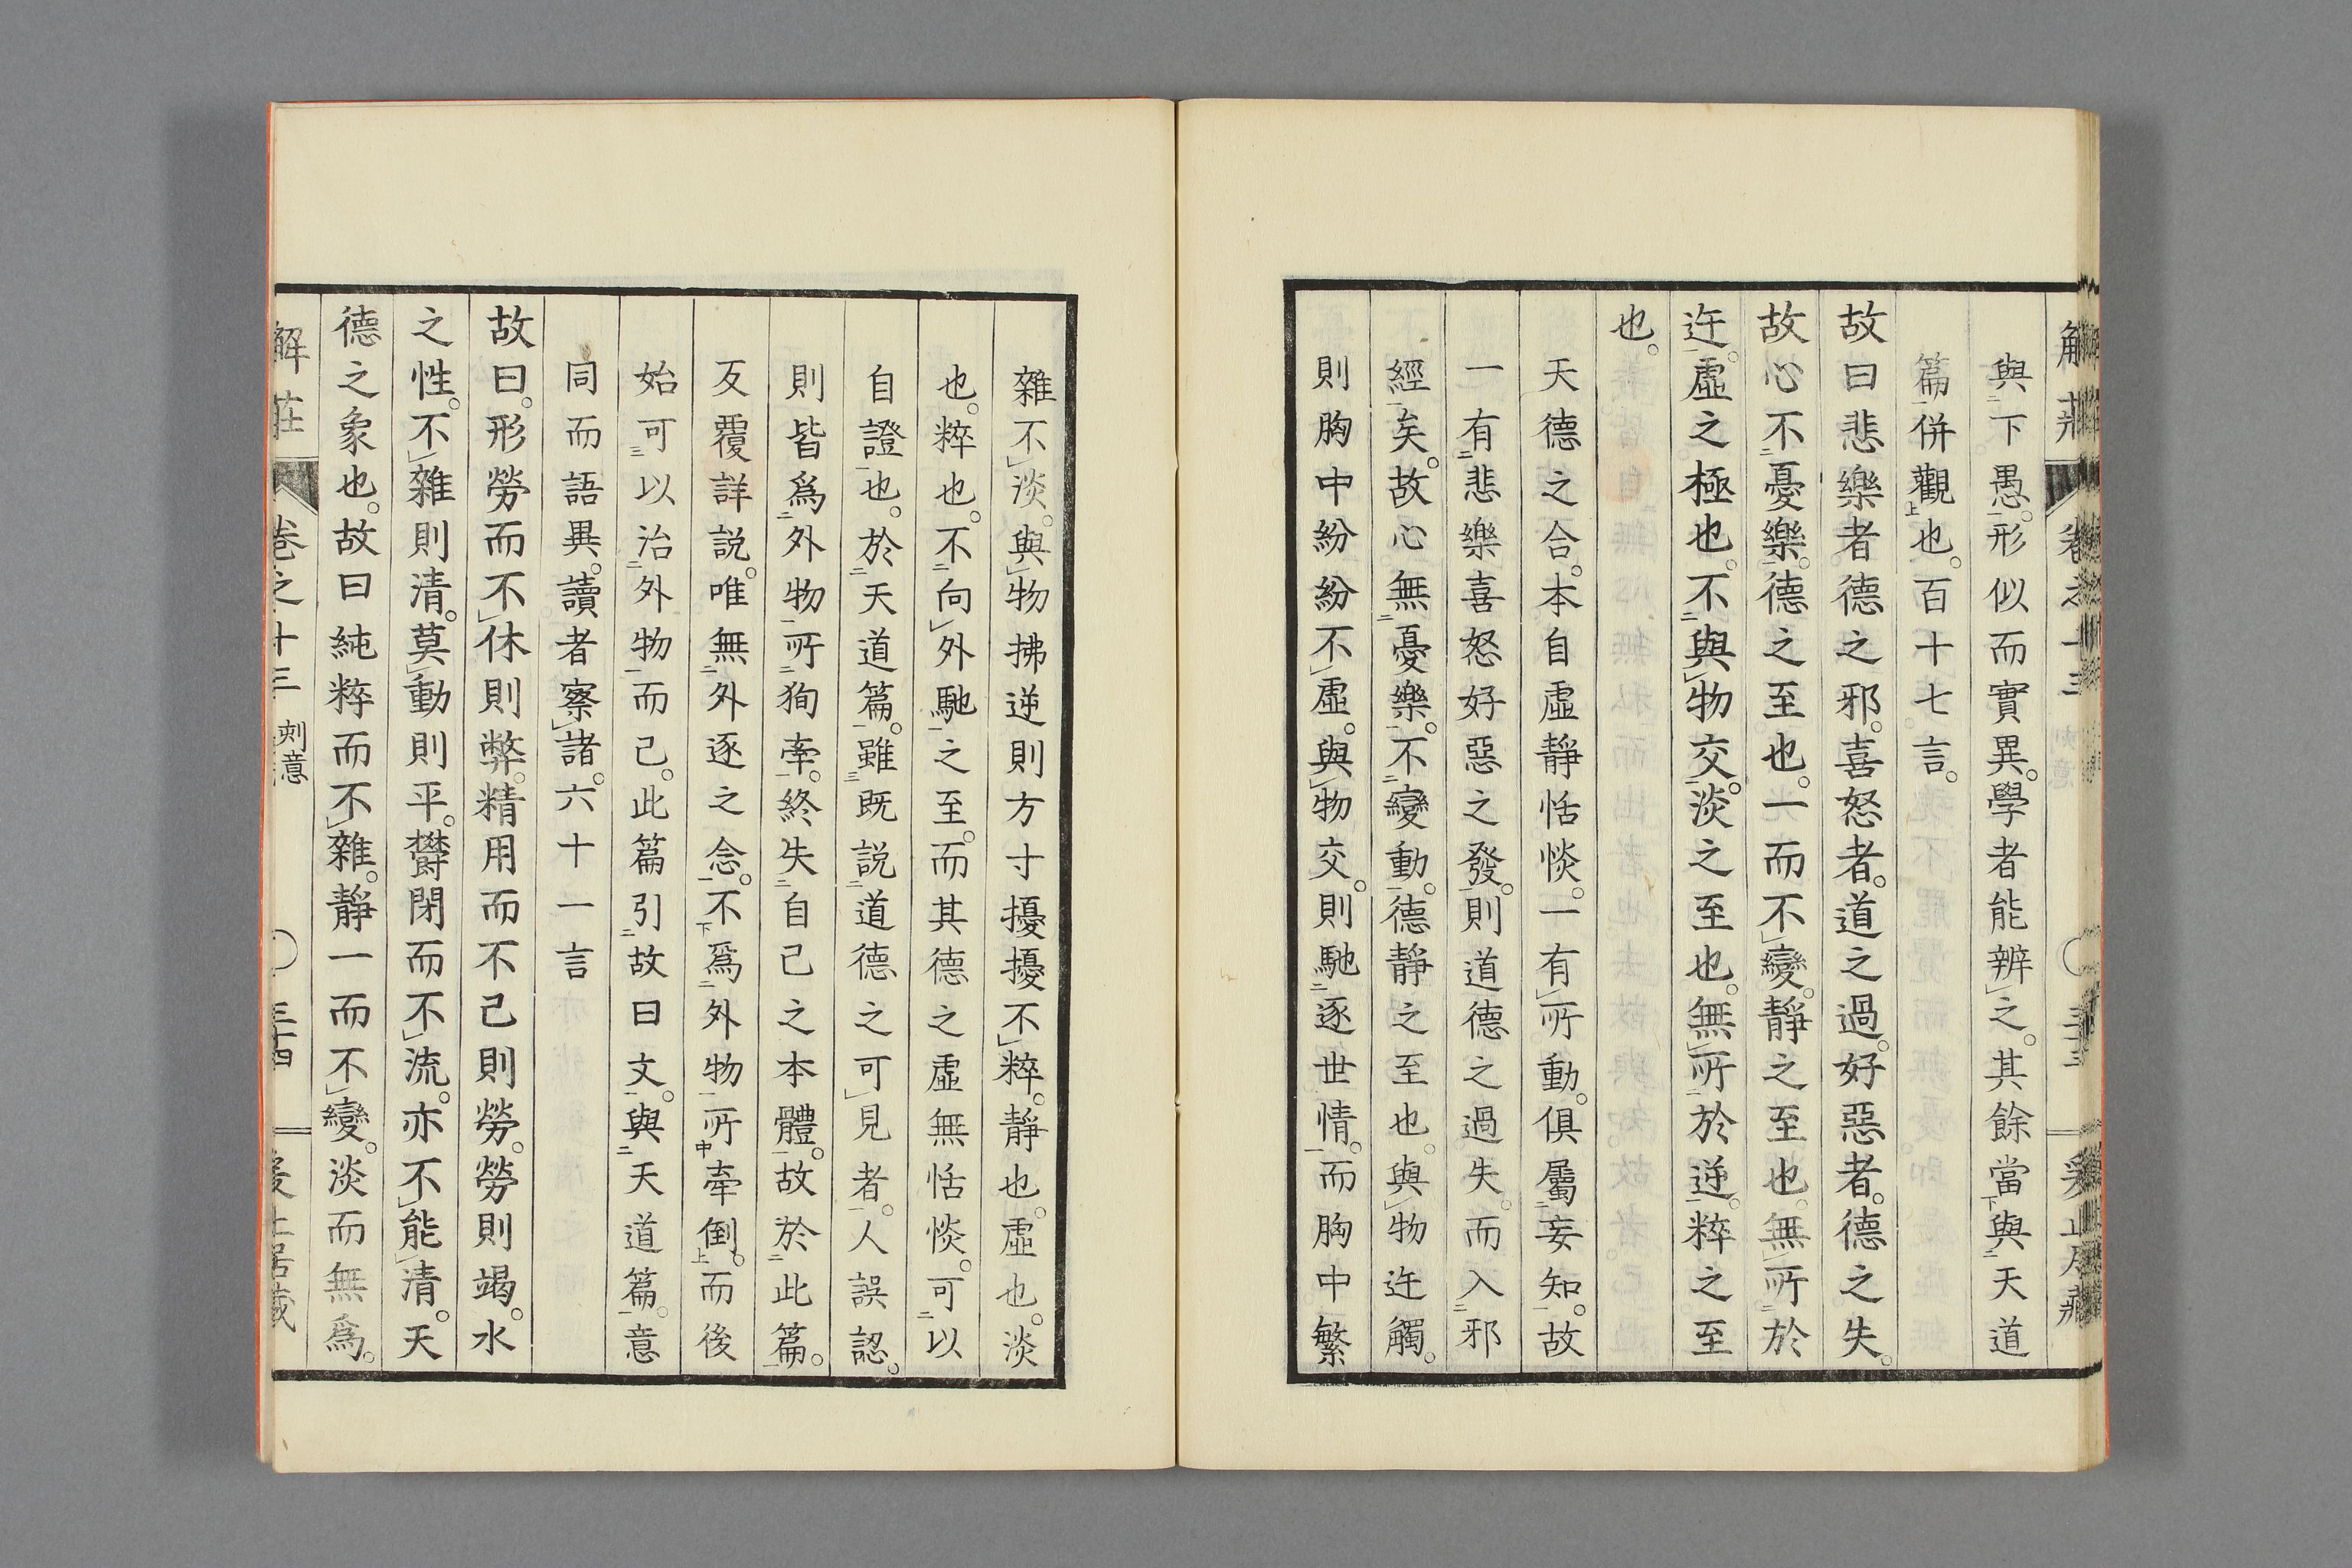 解莊 卷之十三
與下愚。形似而實異。學者能辨之。其餘當與天道
篇併觀也。百十七言。
故曰悲樂者德之邪。喜怒者。道之過。好惡者。德之失。
故心不憂樂。德之至也。一而不變。靜之至也。無所於
迕。虛之極也。不與物交。淡之至也。無所於逆。粹之至
也。
天德之合。本自虛靜恬惔。一有所動。俱屬妄知。故
一有悲樂喜怒好惡之發。則道德之過失。而入邪
經矣。故心無憂樂。不變動。德靜之至也。與物迕觸。
則胸中紛紛不虛。與物交。則馳逐世情。而胸中繁
雜不淡。與物拂逆則方寸擾擾不粹。靜也。虛也。淡
也。粹也。不向外馳之至。而其德之虛無恬惔。可以
自證也。於天道篇。雖既説道德之可見者。人誤認。
則皆爲外物所狥牽。終失自己之本體。故於此篇。
反覆詳説。唯無外逐之念。不爲外物所牽倒。而後
始可以治外物而已。此篇引故曰文。與天道篇。意
同而語異。讀者察諸。六十一言
故曰。形勞而不休則弊。精用而不已則勞。勞則竭。水
之性。不雜則清。莫動則平。欝閉而不流。亦不能清。天
德之象也。故曰純粹而不雜。靜一而不變。淡而無爲。
解莊 卷之十三 刻意 〇 三十四